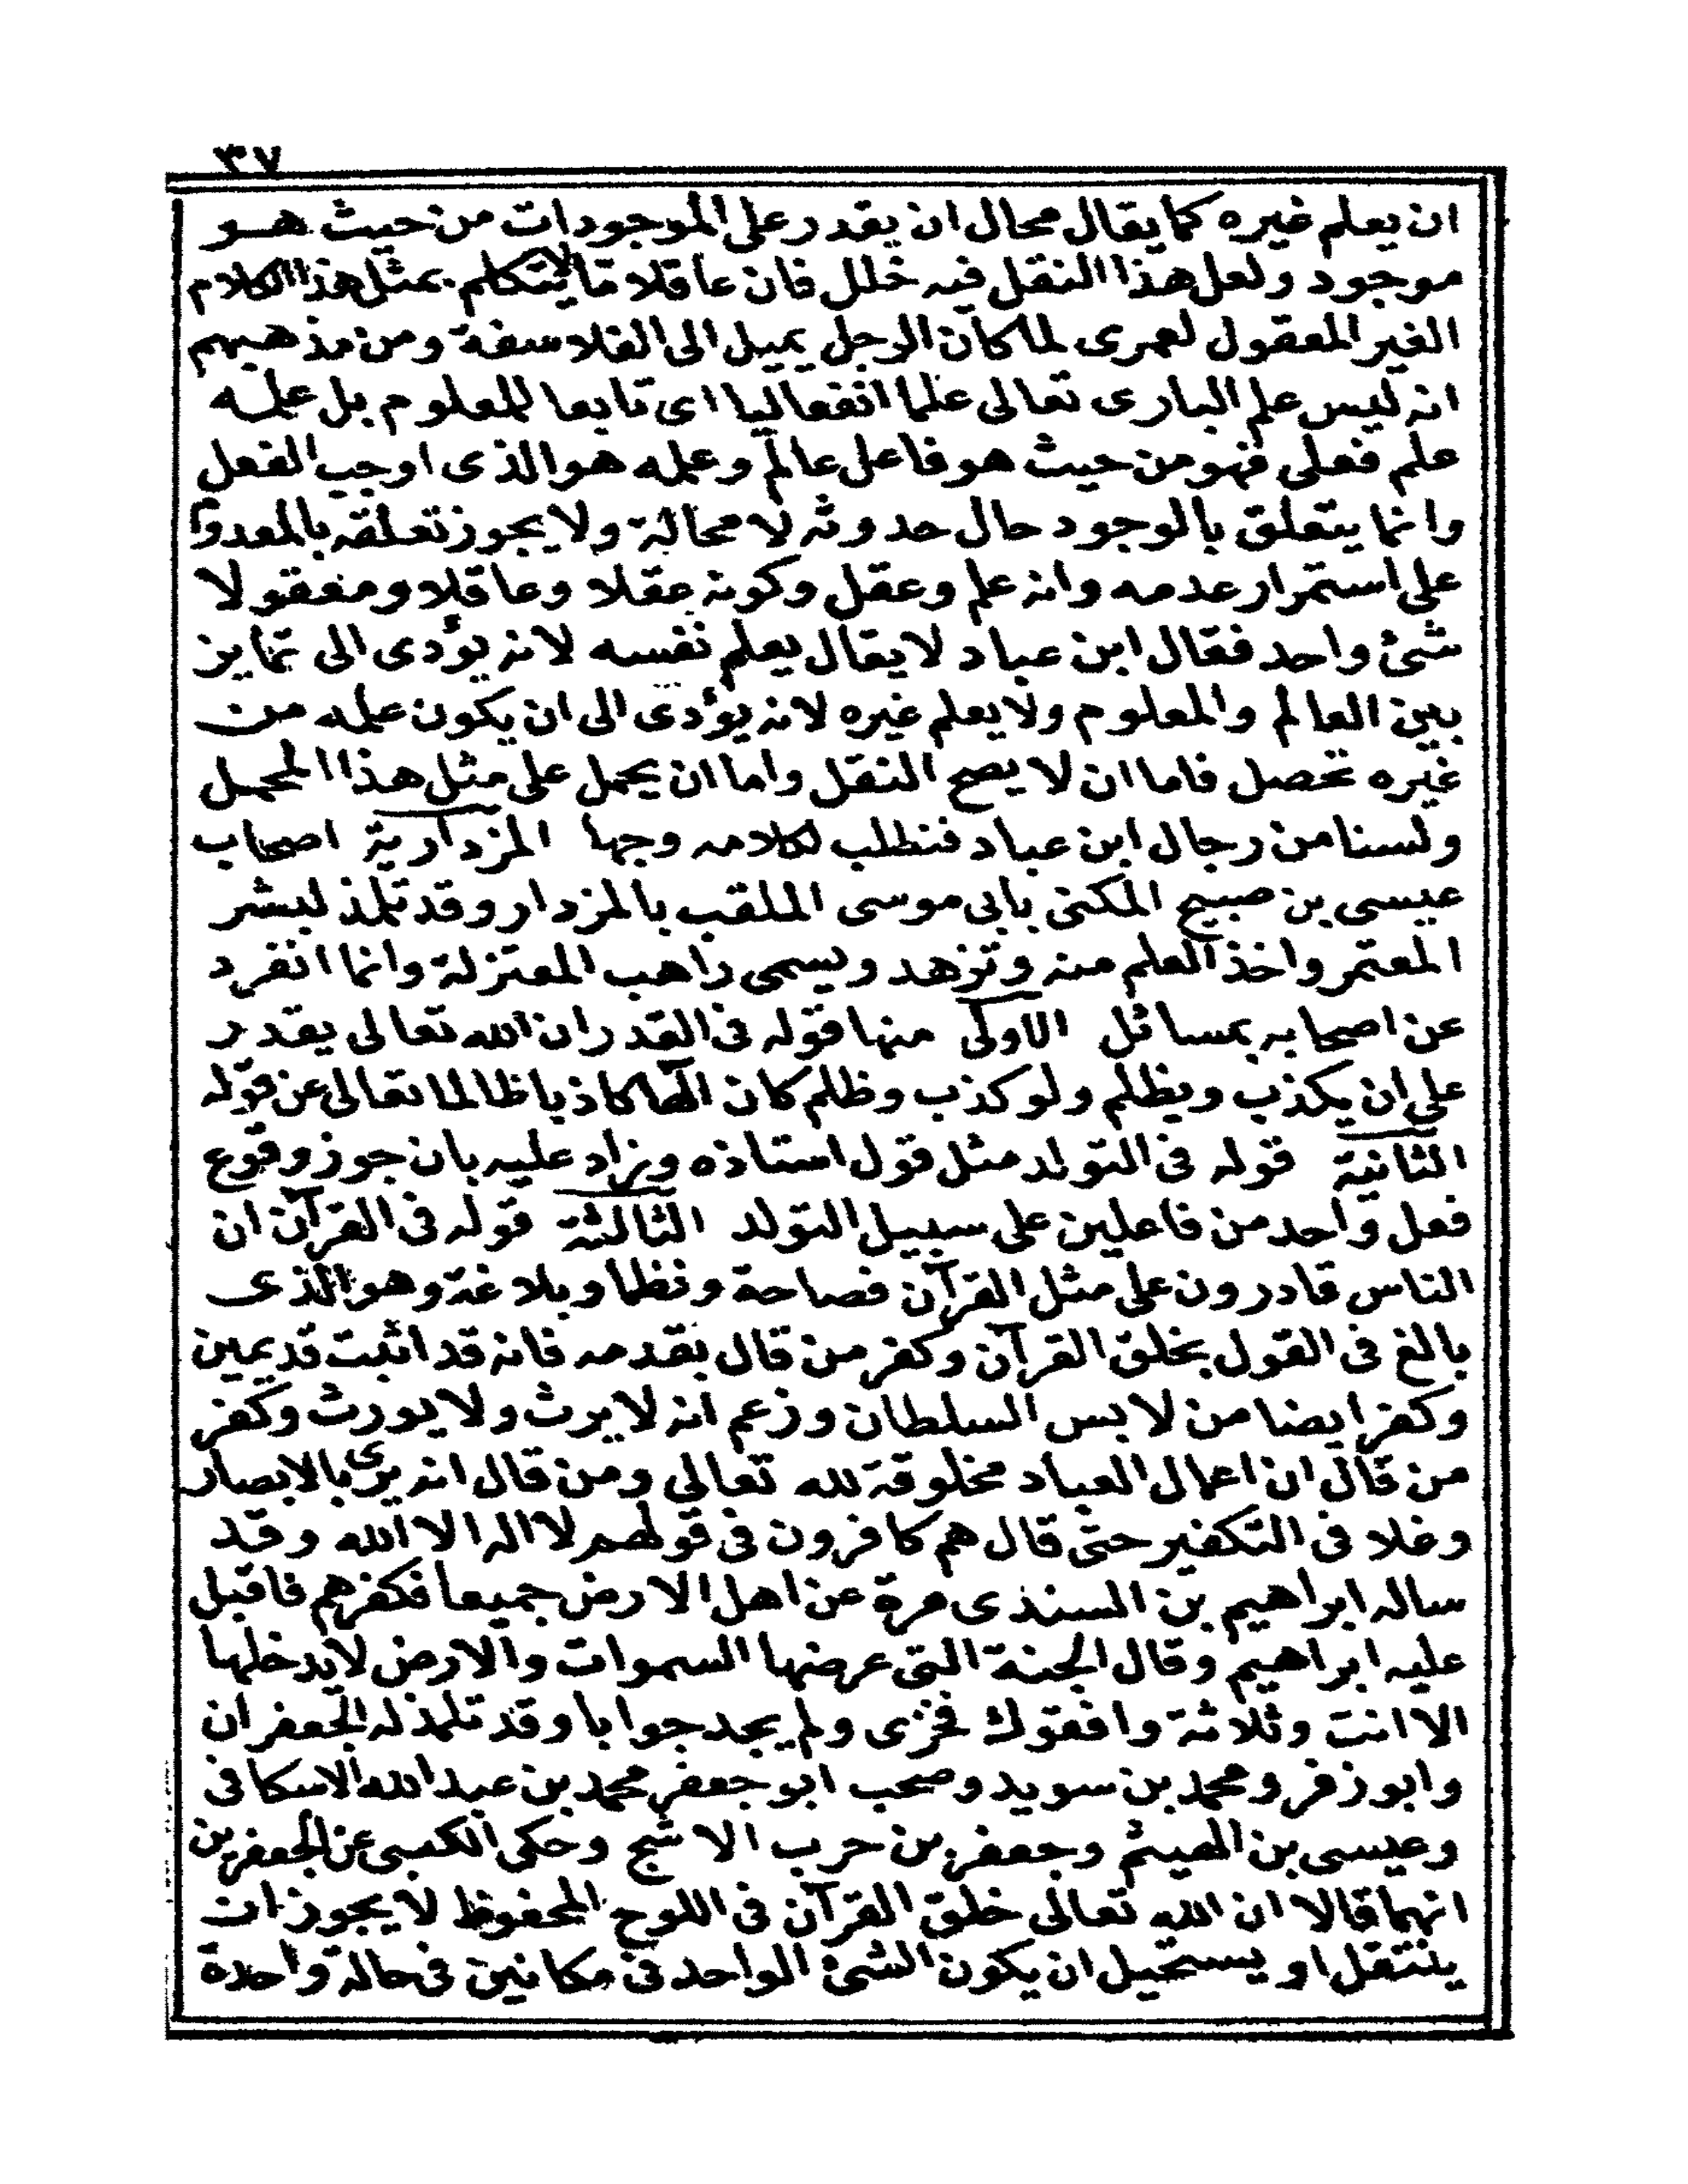 ٣٧
ان يعلم غيره كما يقال محال ان يقدر على الموجودات من حيث هو
موجود ولعل هذا النقل فيه خلل فان عاقلا ما لا يتكلم بمثل هذا الكلام
الغير المعقول لعمرى لما كان الرجل يميل الى الفلاسفة ومن مذهبهم
انه ليس علم البارى تعالى علما انفعاليا اى تابعا للمعلوم بل علمه
علم فعلى فهو من حيث هو فاعل عالم وعلمه هو الذى اوجب الفعل
وانما يتعلق بالوجود حال حدوثه لا محالة ولا يجوز تعلقه بالمعدوم
على استمرار عدمه وانه علم وعقل وكونه عقلا وعاقلا ومعقولا
شئ واحد فقال ابن عباد لا يقال يعلم نفسه لانه يؤدى الى تمايز
بين العالم والمعلوم ولا يعلم غيره لانه يؤدى الى ان يكون علمه من
غيره تحصل فاما ان لا يصح النقل واما ان يحمل على مثل هذا المحمل
ولسنا من رجال ابن عباد فنطلب لكلامه وجها المزدارية اصحاب
عيسى بن صبيح المكنى بابى موسى الملقب بالمزدار وقد تلمذ لبشر
المعتمر واخذ العلم منه وتزهد ويسمى راهب المعتزلة وانما انفرد
عن اصحابه بمسائل الاولى منها قوله فى القدر ان الله تعالى يقدر
على ان يكذب ويظلم ولو كذب وظلم كان الها كاذبا ظالما تعالى عن قوله
الثانية قوله فى التولد مثل قول استاذه وزاد عليه بان جوز وقوع
فعل واحد من فاعلين على سبيل التولد الثالثة قوله فى القرآن ان
الناس قادرون على مثل القرآن فصاحة ونظما وبلاغة وهو الذى
بالغ فى القول بخلق القرآن وكفر من قال بقدمه فانه قد اثبت قديمين
وكفر ايضا من لابس السلطان وزعم انه لا يرث ولا يورث وكفر
من قال ان اعمال العباد مخلوقة لله تعالى ومن قال انه يرى بالابصار
وغلا فى التكفير حتى قال هم كافرون فى قولهم لا اله الا الله وقد
ساله ابراهيم بن السندى مرة عن اهل الارض جميعا فكفرهم فاقبل
عليه ابراهيم وقال الجنة التى عرضها السموات والارض لا يدخلها
الا انت وثلاثة وافقوك فخزى ولم يجد جوابا وقد تلمذ له الجعفران
وابو زفر ومحمد بن سويد وصحب ابو جعفر محمد بن عبد الله الاسكافى
وعيسى بن الهيثم وجعفر بن حرب الاشج وحكى الكعبى عن الجعفرين
انهما قالا ان الله تعالى خلق القرآن فى اللوح المحفوظ لا يجوز ان
ينتقل او يستحيل ان يكون الشئ الواحد فى مكانين فى حالة واحدة